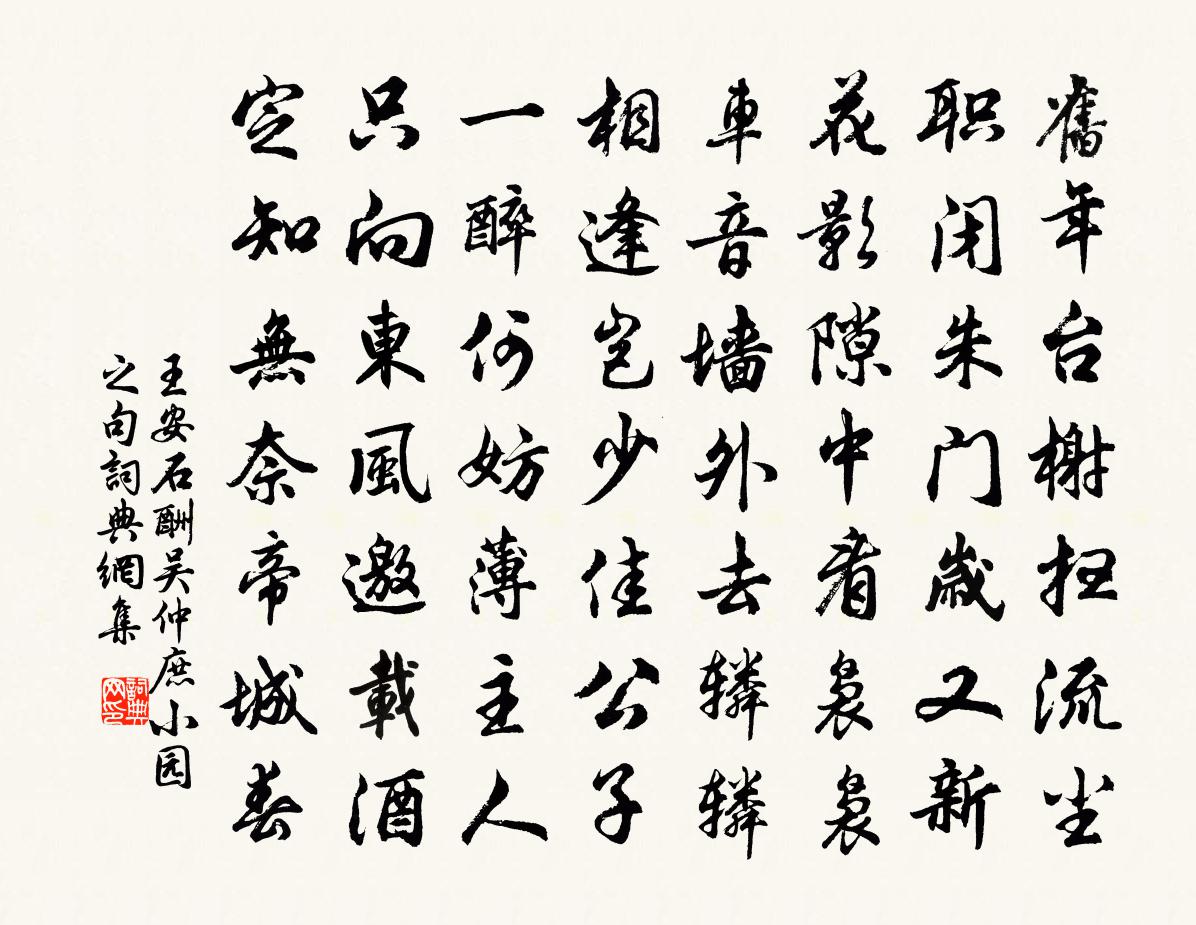 舊年台榭扫流尘
职闭朱门歲又新
花影隙中看袅袅
車音墙外去辚辚
相逢岂少佳公子
一醉何妨薄主人
只向東風邀載酒
定知無奈帝城春
王安石酬吴仲庶小园
之句詞典網集
詞典网印